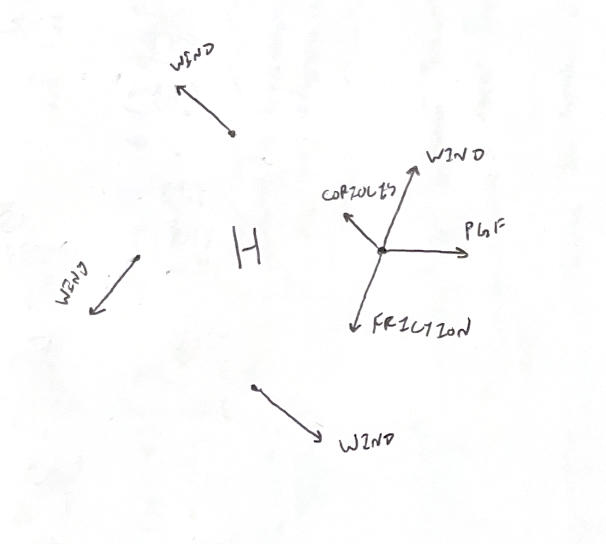 WIND
WIND
CORIOLIS
PGF
H
WIND
FRICTION
WIND